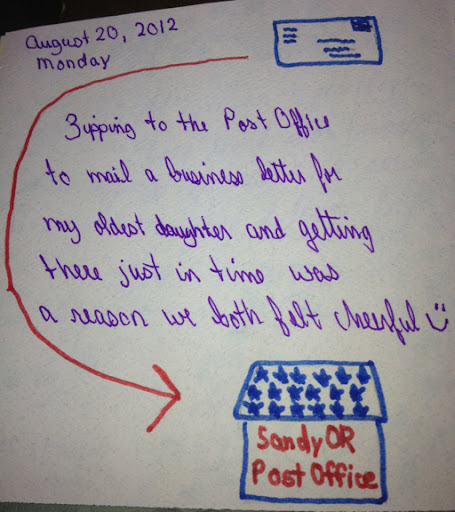 August 20, 2012
Monday
Zipping to the Post Office
to mail a business letter for
my oldest daughter and getting
there just in time was
a reason we both felt cheerful
Sandy OR
Post Office